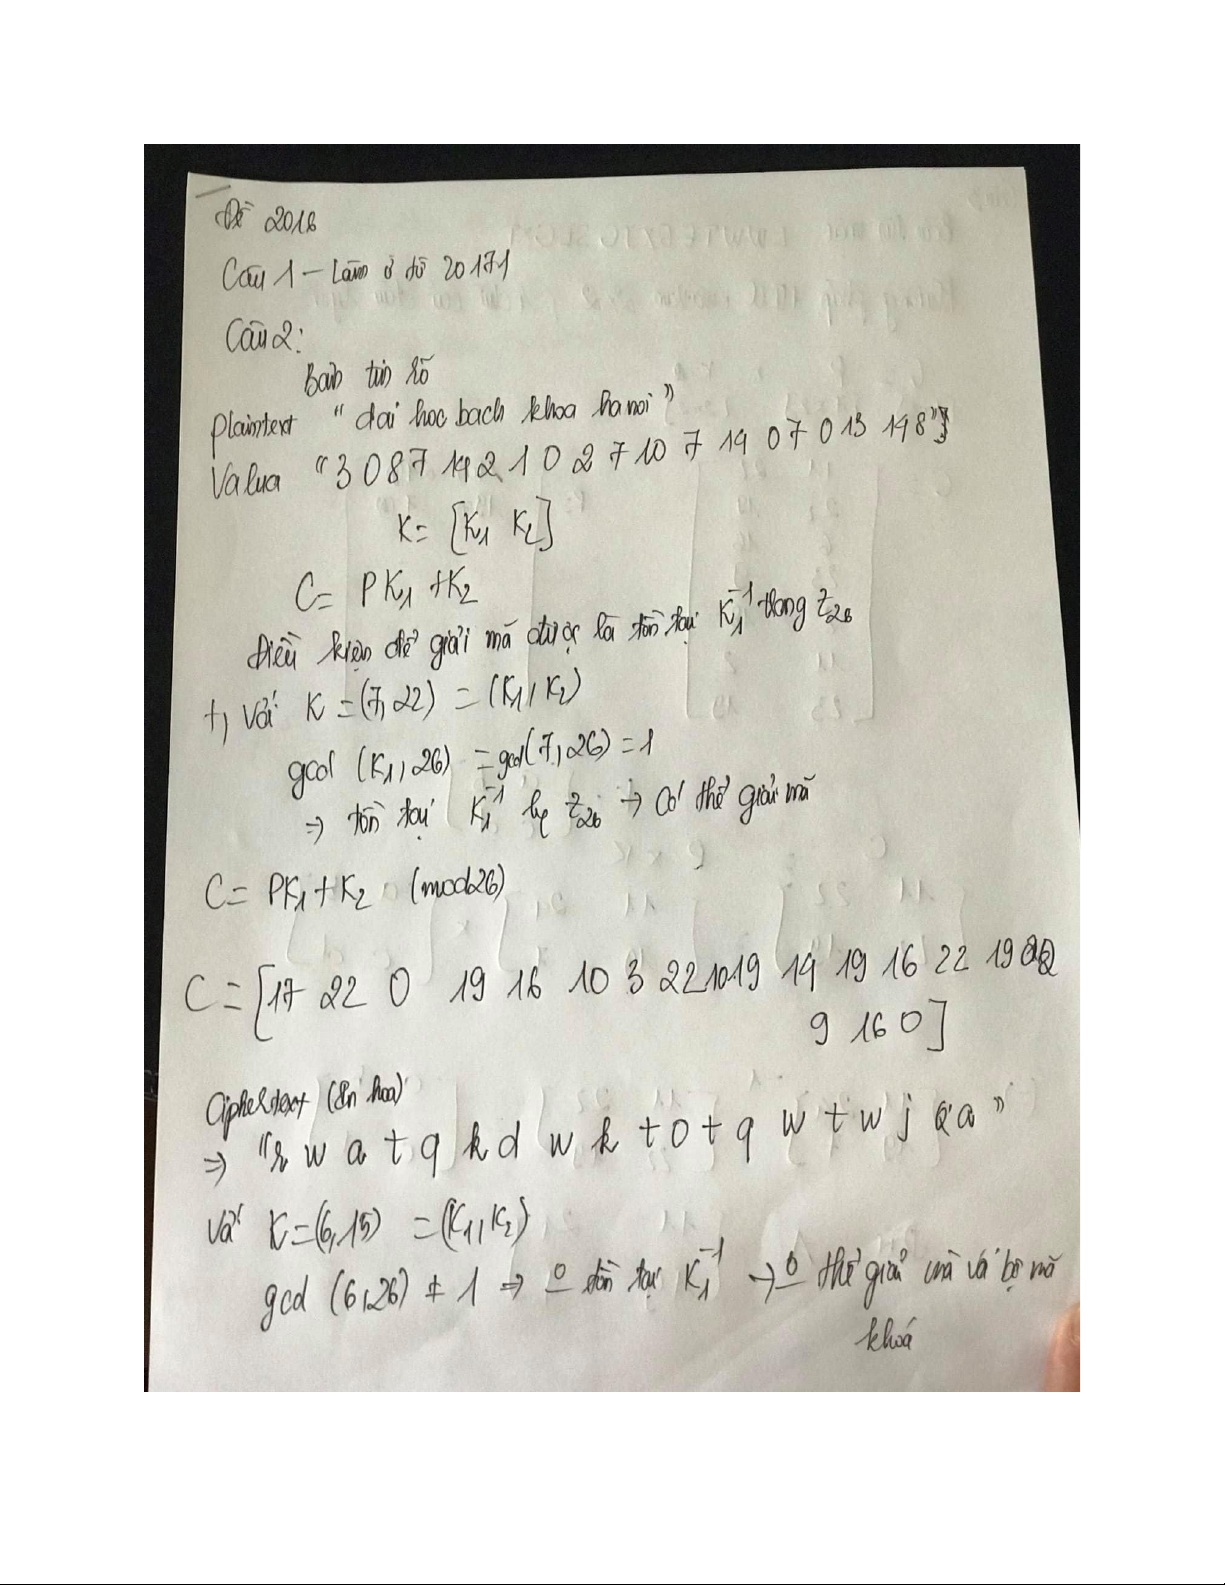 Đề 2018
Câu 1 – Làm ở đề 20171
Câu 2:
Bản tin rõ
Plaintext "dai hoc bach khoa hanoi"
Value "3 0 8 7 14 2 1 0 2 7 10 7 14 0 7 0 13 14 8"]
K = [K1 K2]
C = PK1 + K2
Điều kiện để giải mã được là tồn tại K1^-1 trong Z26
+, Với K = (7, 22) = (K1, K2)
gcd (K1, 26) = gcd(7, 26) = 1
⇒ tồn tại K1^-1 Z26 → Có thể giải mã
C = PK1 + K2 (mod 26)
C = [17 22 0 19 16 10 3 22 10 19 14 19 16 22 19 22
9 16 0]
Ciphertext (In hoa)
⇒ "r w a t q k d w k t o t q w t w j q a"
Với K = (6, 15) = (K1, K2)
gcd (6, 26) ≠ 1 ⇒ o tồn tại K1^-1 → o thể giải mã với bộ mã
khoá